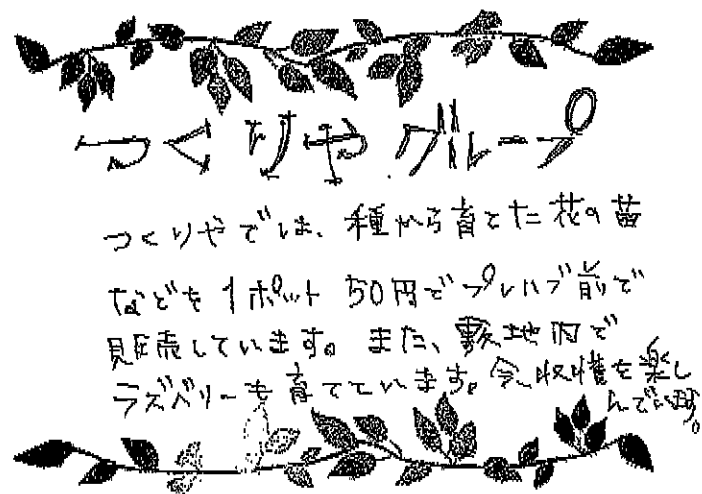 つくりやグループ
つくりやでは、種から育てた花の苗
などを1ポット 50円でプレハブ前で
販売しています。また、敷地内で
ラズベリーも育てています。今、収穫を楽し
んでいます。